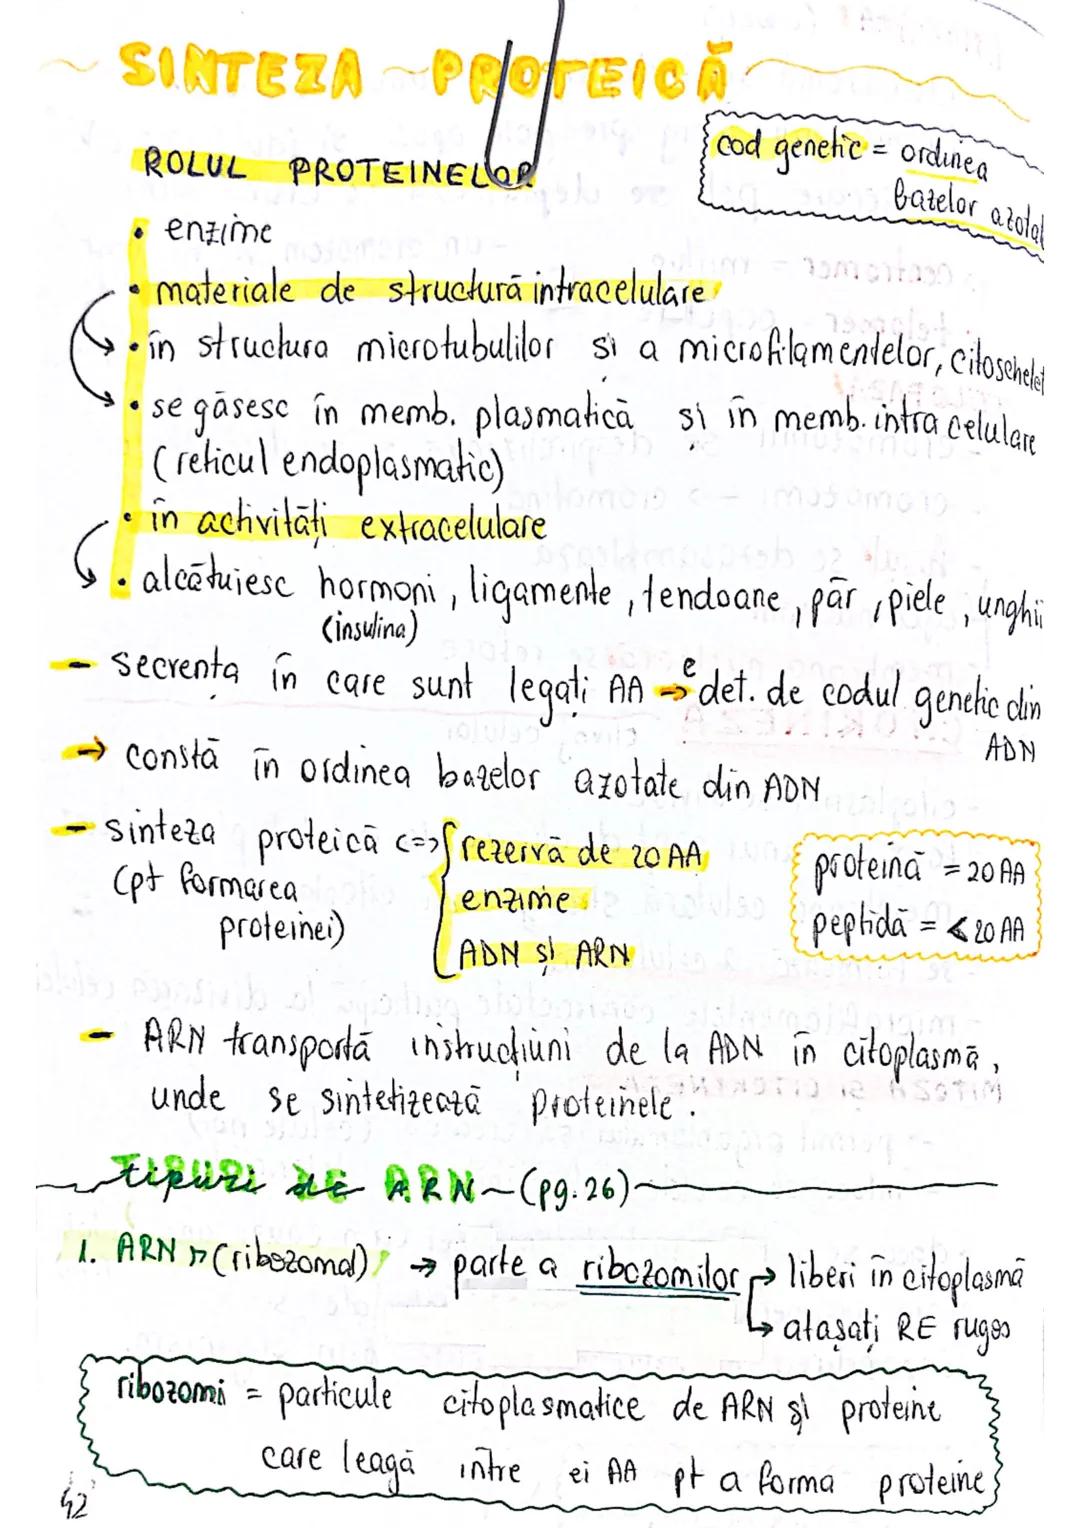 SINTEZA PROTEICĂ
cod genetic = ordinea
bazelor azotat
ROLUL PROTEINELOR
• enzime
• materiale de structură intracelulare
• în structura microtubulilor și a microfilamentelor, citoschelet
• se găsesc în memb. plasmatică și în memb. intracelulare
(reticul endoplasmatic)
• în activități extracelulare
• alcătuiesc hormoni, ligamente, tendoane, păr, piele, unghii
(insulina)
- secvența în care sunt legați AA → e det. de codul genetic din
ADN
→ constă în ordinea bazelor azotate din ADN
- sinteza proteică <=> rezervă de 20 AA
(pt formarea enzime
proteinei) ADN și ARN
proteină = 20 AA
peptidă = < 20 AA
- ARN transportă instrucțiuni de la ADN în citoplasmă,
unde se sintetizează proteinele.
tipuri de ARN ~ (pg. 26)
1. ARN r (ribozomal) → parte a ribozomilor → liberi în citoplasmă
↳ atașați RE rugos
ribozomi = particule citoplasmatice de ARN și proteine
care leagă între ei AA pt a forma proteine
42